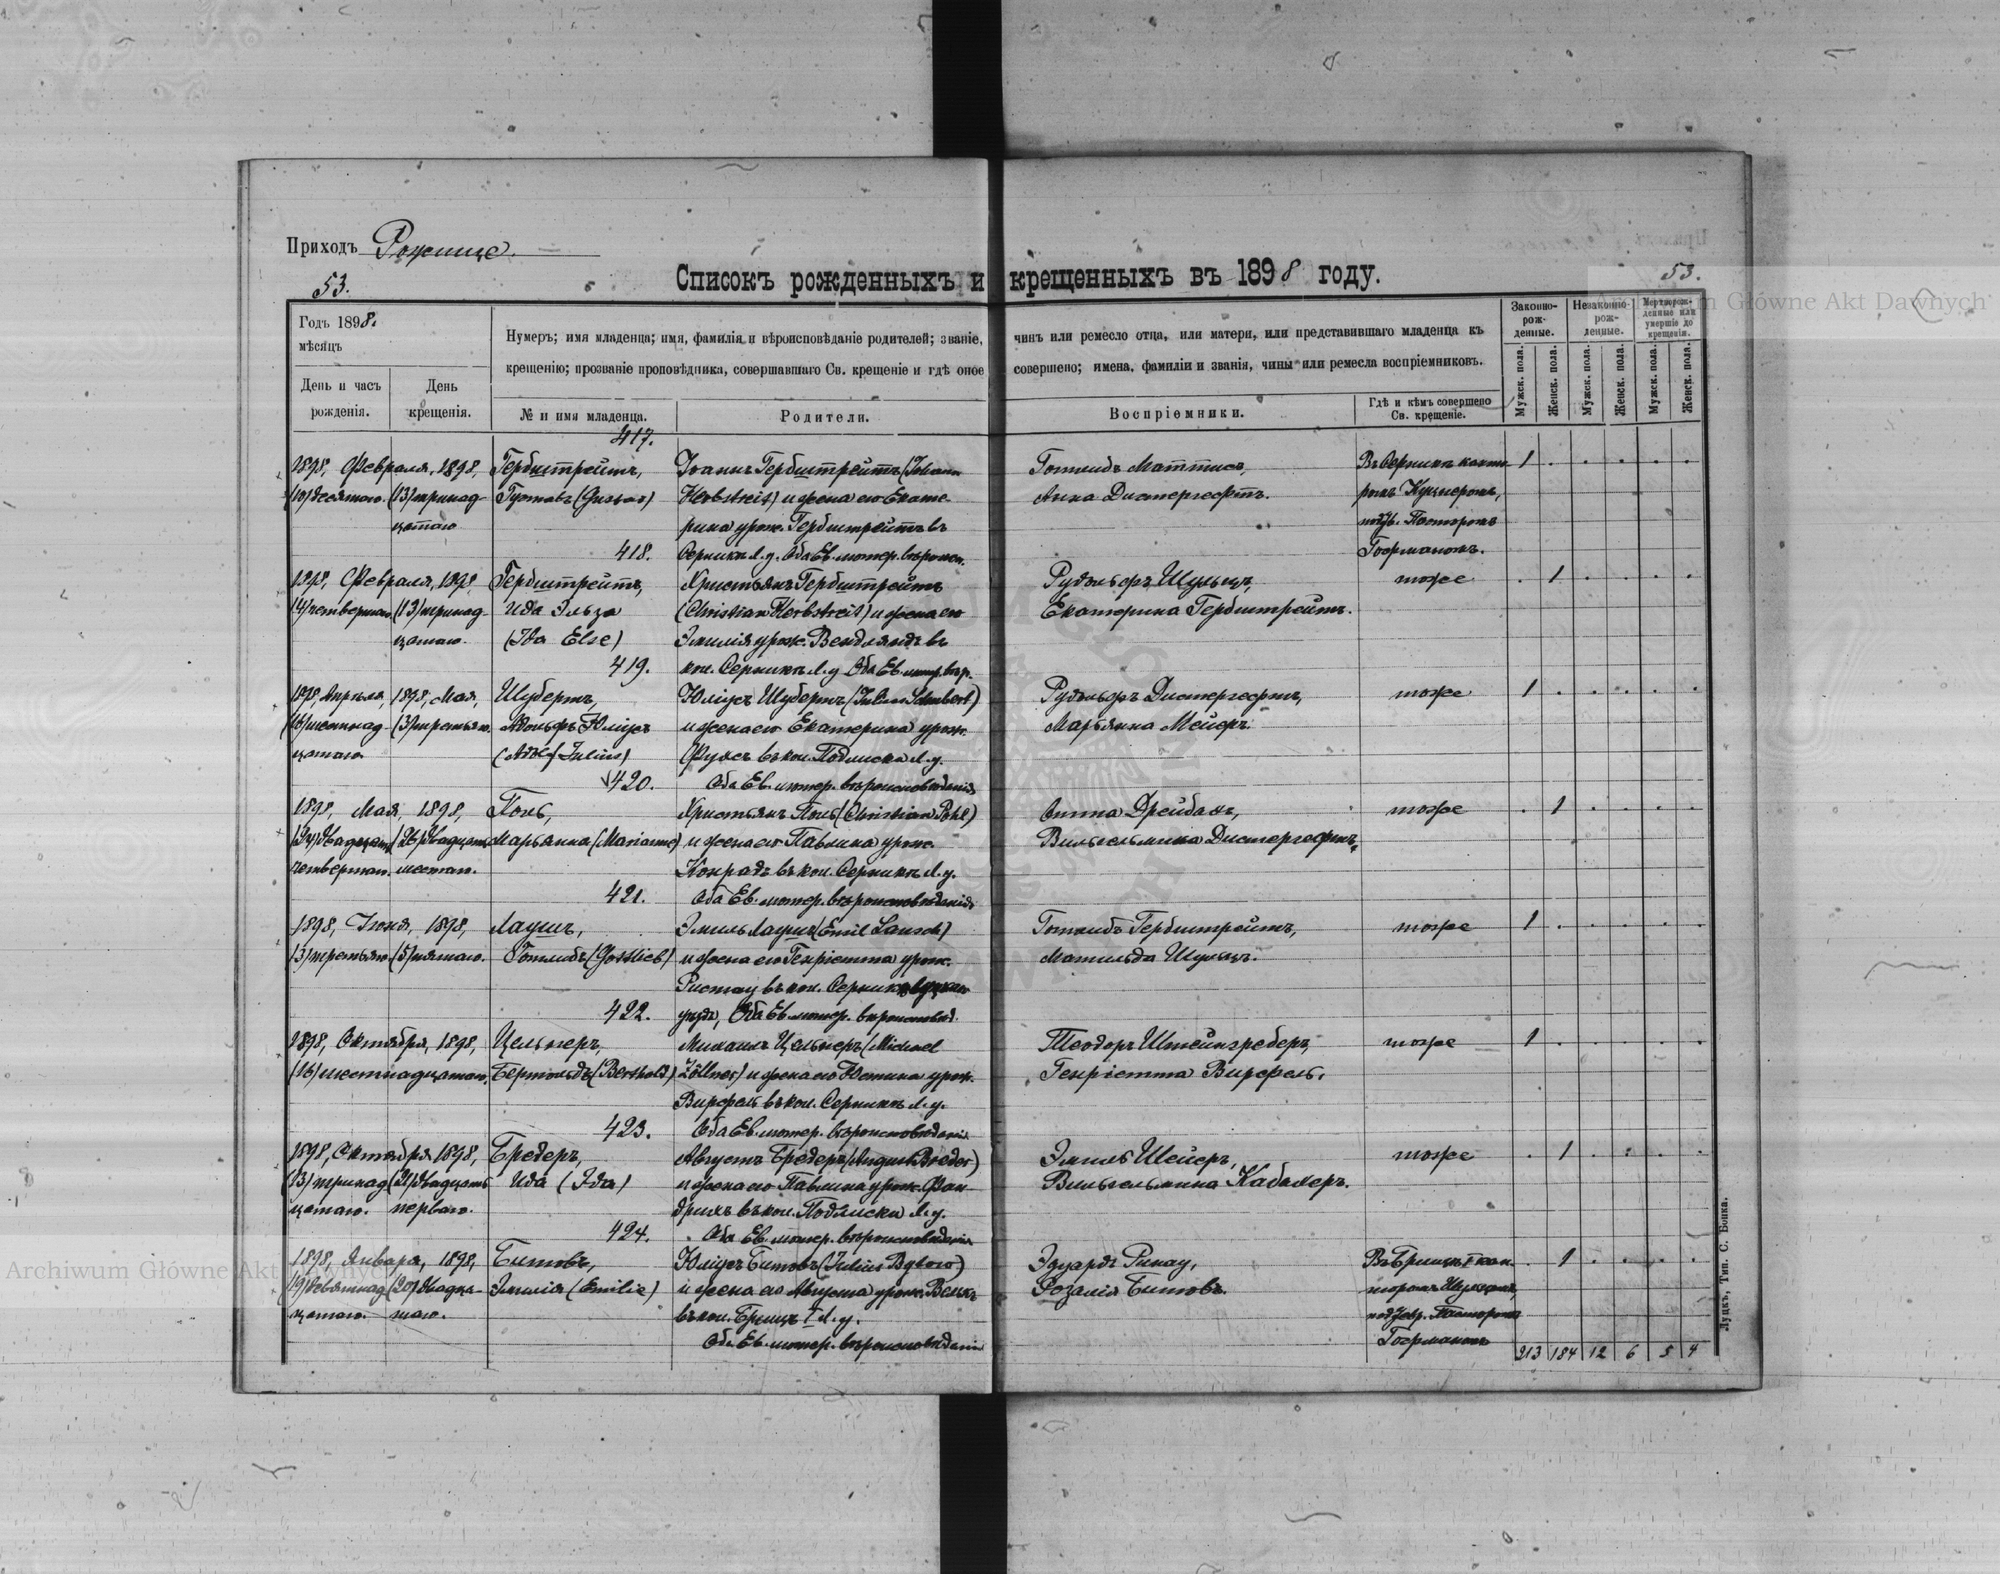 Приходъ Рожище.
53.
Списокъ рожденныхъ и крещенныхъ въ 1898 году.
53.
Годъ 1898.
мѣсяцъ
День и часъ рожденія.
День крещенія.
Нумеръ; имя младенца; имя, фамилія и вѣроисповѣданіе родителей; званіе, чинъ или ремесло отца, или матери, или представившаго младенца къ
крещенію; прозваніе проповѣдника, совершавшаго Св. крещеніе и гдѣ оное совершено; имена, фамиліи и званія, чины или ремесла воспріемниковъ.
№ и имя младенца.
Родители.
Воспріемники.
Гдѣ и кѣмъ совершено Св. крещеніе.
Законно-рож-денные.
Незаконно-рож-денные.
Мертворож-денные или умершіе до крещенія.
Мужск. пола.
Женск. пола.
Мужск. пола.
Женск. пола.
Мужск. пола.
Женск. пола.
417.
1898, Февраля, 1898, Гербштрейтъ, Іоаннъ Гербштрейтъ (Johann Готлибъ Маттисъ, Въ Серникъ канто- 1
(10) десятаго. (13) тринад- Густавъ (Gustav) Herbstreit) и жена его Екате- Анна Дистергефтъ. ромъ
цатаго рина урож. Гербштрейтъ въ подтв. Пасторомъ
418. Серникъ Л.у. Оба Ев. лютер. вѣроисп. Гофманомъ.
1898, Февраля, 1898, Гербштрейтъ, Христьянъ Гербштрейтъ Рудольфъ Шульцъ, тоже 1
(4) четвертаго (13) тринад- Ида Эльза (Christian Herbstreit) и жена его Екатерина Гербштрейтъ.
цатаго. (Ida Else) Эмилія урож. Вендляндъ въ
419. кол. Серникъ Л.у. Оба Ев. лютер. вѣр.
1898, Апрѣля, 1898, Мая, Шубертъ, Юліусъ Шубертъ (Julius Schubert) Рудольфъ Дистергефтъ, тоже 1
(16) шестнад- (3) третьяго. Адольфъ Юліусъ и жена его Екатерина урож. Марьянна Мейеръ.
цатаго (Adolf Julius) Фуксъ въ кол. Подлиски Л.у.
420. Оба Ев. лютер. вѣроисповѣданія
1898, Мая, 1898, Поль, Христьянъ Поль (Christian Pohl) Анна Дрейбахъ, тоже 1
(24) двадцать (26) двадцать Марьанна (Marianne) и жена его Павлина урож. Вильгельмина Дистергефтъ.
четвертаго. шестаго. Конрадъ въ кол. Серникъ Л.у.
421. Оба Ев. лютер. вѣроисповѣданія
1898, Іюня, 1898, Лаушъ, Эмиль Лаушъ (Emil Lausch) Готлибъ Гербштрейтъ, тоже 1
(3) третьяго (5) пятаго. Готлибъ (Gottlieb) и жена его Генріетта урож. Матильда Шульцъ.
Ристау въ кол. Серникъ
422. уѣзда, Оба Ев. лютер. вѣроисповѣд.
1898, Октября, 1898, Цельнеръ, Михаилъ Цельнеръ (Michael Теодоръ Штейнгреберъ, тоже 1
(16) шестнадцатаго. Бертольдъ (Berthold) Zöllner) и жена его Юстина урож. Генріетта Вирфель.
Вирфель въ кол. Серникъ Л.у.
423. Оба Ев. лютер. вѣроисповѣданія
1898, Октября 1898, Бредеръ, Августъ Бредеръ (August Breder) Эмиль Шейеръ, тоже 1
(13) тринад (21) двадцать Ида (Ida) и жена его Павлина урож. Фан- Вильгельмина Кабахеръ.
цатаго. перваго. дрихъ въ кол. Подлиски Л.у.
424. Оба Ев. лютер. вѣроисповѣданія
1898, Января, 1898, Битовъ, Юліусъ Битовъ (Julius Bytow) Эдуардъ Ринау, Въ Брищъ I кан- 1
(19) девятнад (20) двадца- Эмилія (Emilie) и жена его Августа урож. Венкъ Розалія Битовъ.
цатаго. таго. въ кол. Брищъ I Л.у. Пасторомъ
Оба Ев. лютер. вѣроисповѣданія Гофманомъ
213 184 12 6 5 4
Луцкъ, Тип. С. Бонка.
Archiwum Główne Akt Dawnych
Archiwum Główne Akt Dawnych